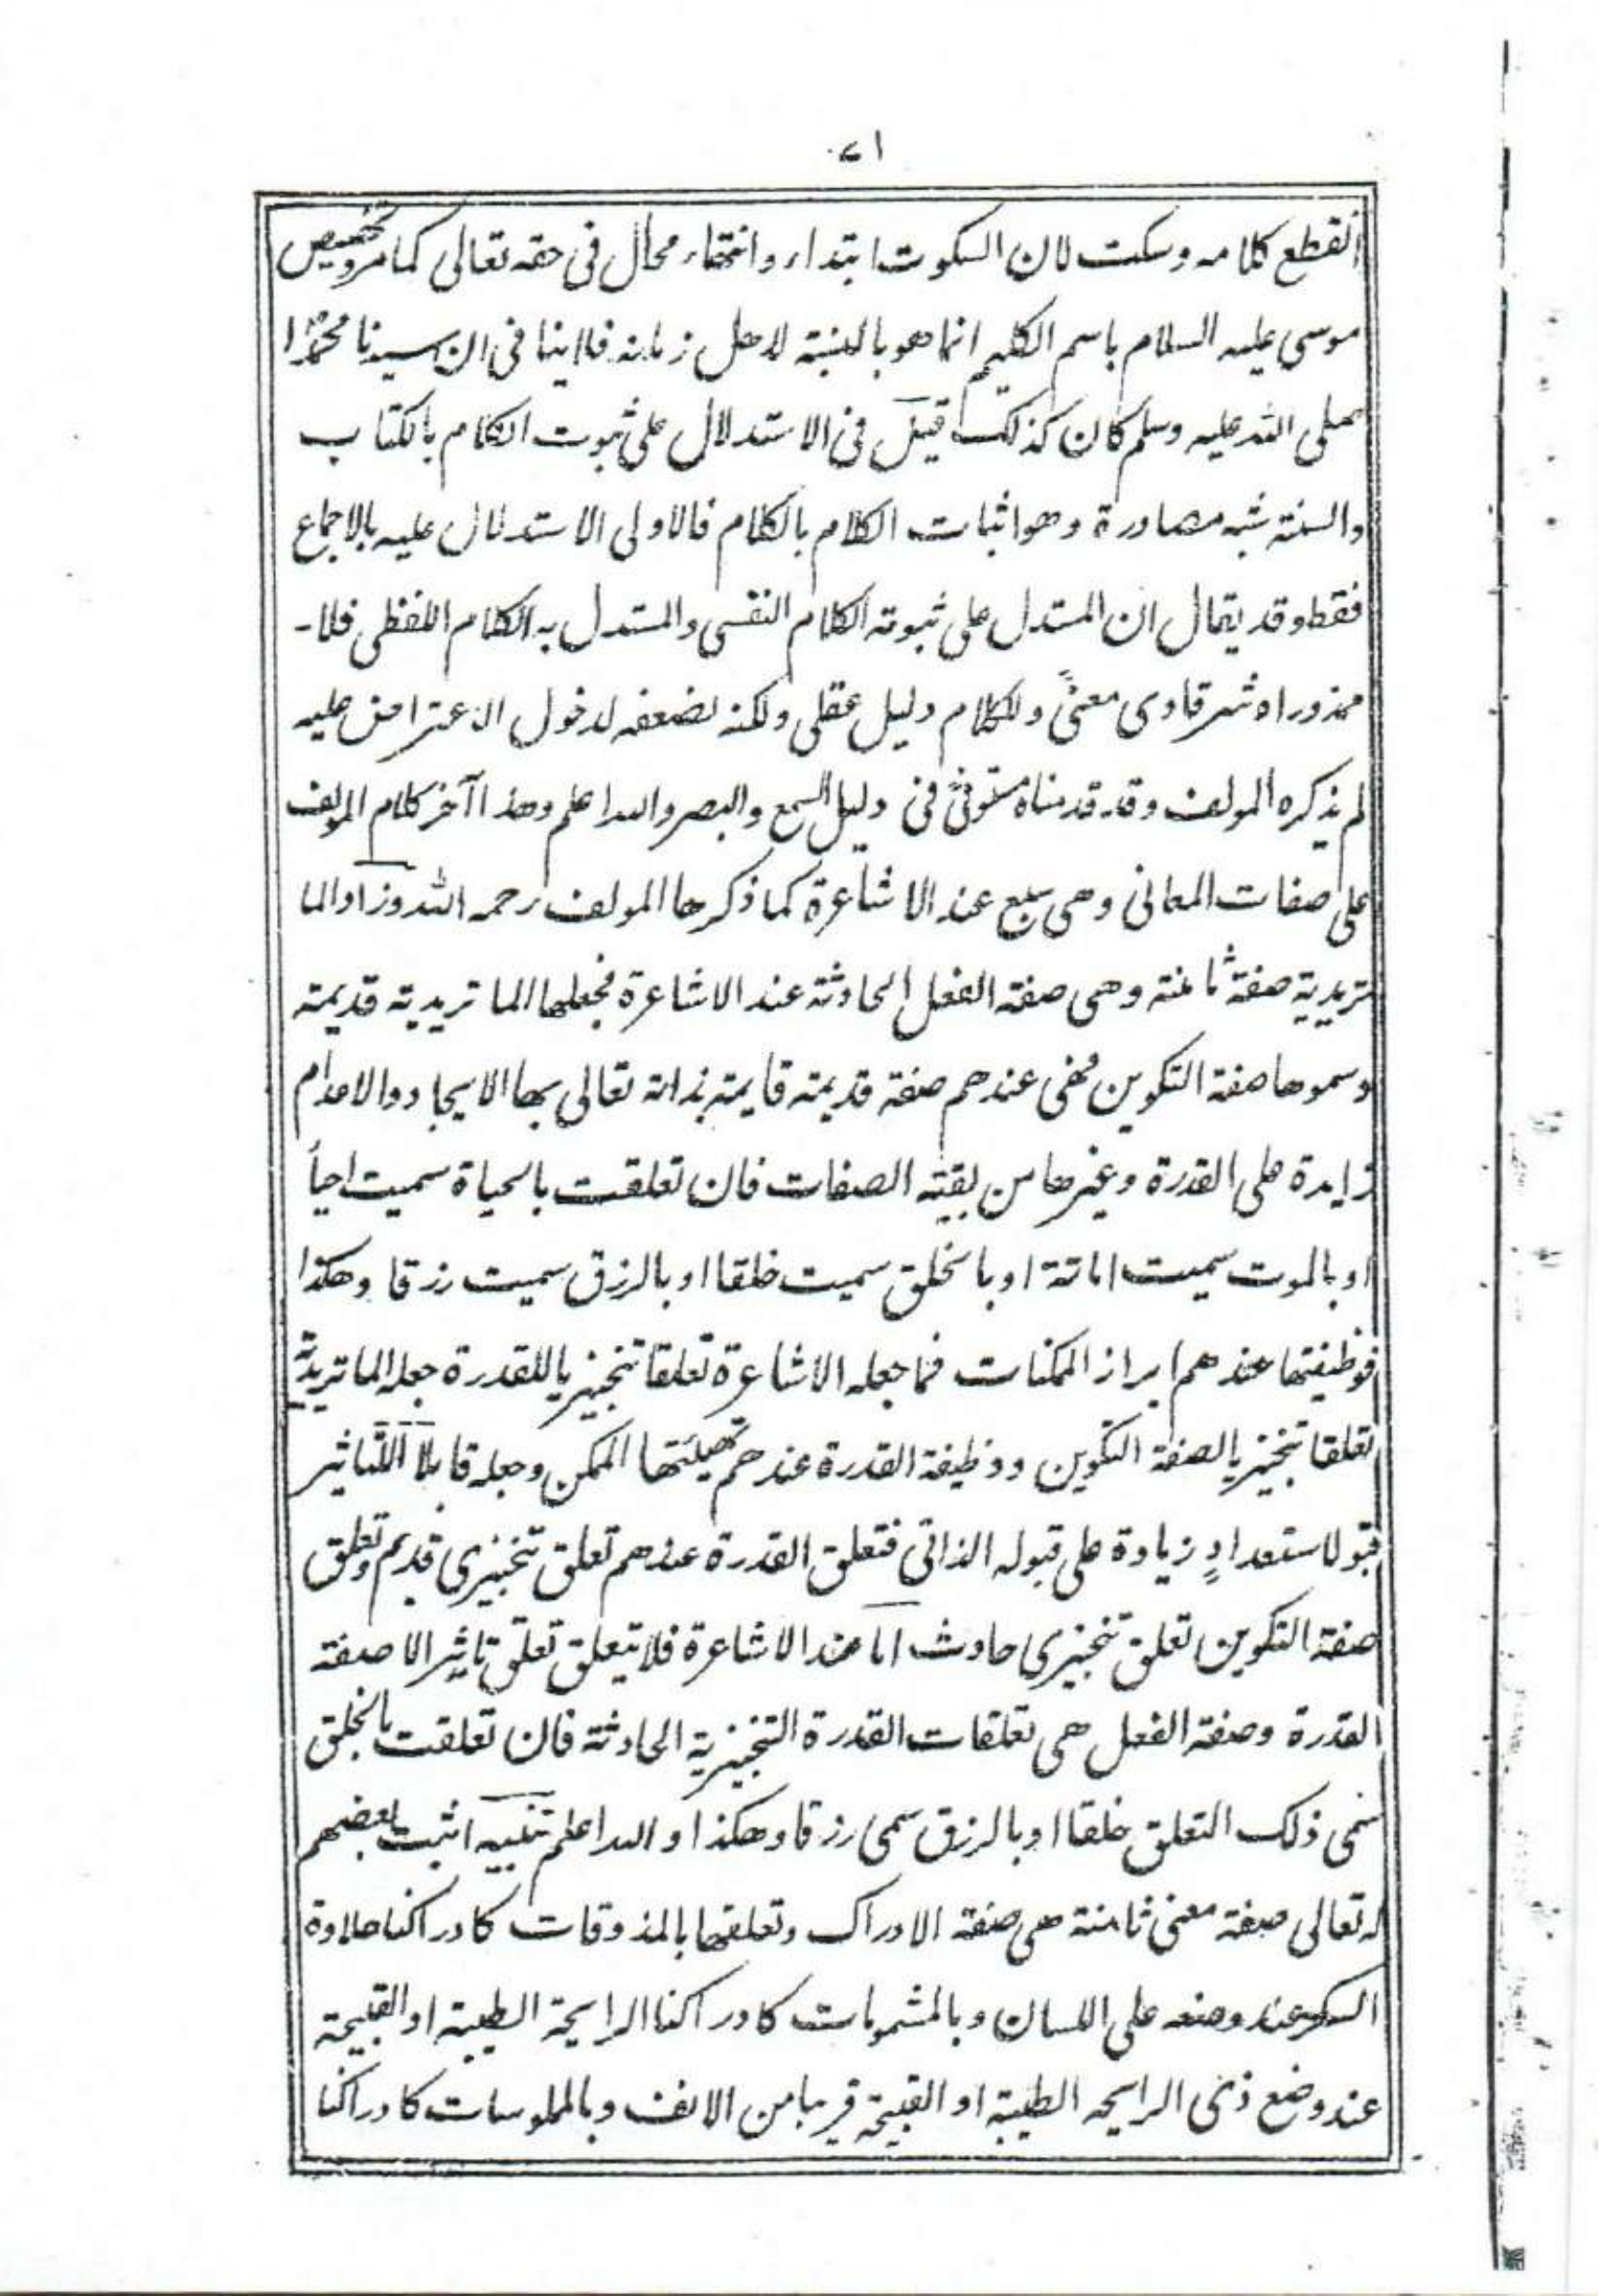 ٧١
انقطع كلامه وسكت لان السكوت ابتداء وانتهاء محال فى حقه تعالى كما مر وتخصيص
موسى عليه السلام باسم الكليم انما هو بالنسبة لاهل زمانه فلا ينا فى ان سيدنا محمدا
صلى الله عليه وسلم كان كذلك قيل فى الاستدلال على ثبوت الكلام بالكتاب
والسنة شبه مصادرة وهو اثبات الكلام بالكلام فالاولى الاستدلال عليه بالاجماع
فقط وقد يقال ان المستدل على ثبوته الكلام النفسى والمستدل به الكلام اللفظى فلا -
محذوراه شرقاوى معنىً وللكلام دليل عقلى ولكنه لضعفه لدخول الاعتراض عليه
لم يذكره المولف وقد قدمناه مستوفى فى دليل السمع والبصر والله اعلم وهذا آخر كلام المولف
على صفات المعانى وهى سبع عند الاشاعرة كما ذكرها المولف رحمه الله وزاد الما
تريدية صفة ثامنة وهى صفة الفعل الحادثة عند الاشاعرة فجعلها الماتريدية قديمة
وسموها صفة التكوين فهى عندهم صفة قديمة قايمة بذاته تعالى بها الايجاد والاعدام
زايدة على القدرة وغيرها من بقية الصفات فان تعلقت بالحياة سميت احياأ
او بالموت سميت اماتة او بالخلق سميت خلقا او بالرزق سميت رزقا وهكذا
فوظيفتها عندهم ابراز الممكنات فما جعله الاشاعرة تعلقا تنجيزيا للقدرة جعله الماتريدية
تعلقا تنجيزيا لصفة التكوين ووظيفة القدرة عندهم تهيئتها الممكن وجعله قابلاً للتاثير
قبولا ستعدادٍ زيادة على قبوله الذاتى فتعلق القدرة عندهم تعلق تنجيزى قديم وتعلق
صفة التكوين تعلق تنجيزى حادث اما عند الاشاعرة فلا يتعلق تعلق تاثير الا صفة
القدرة وصفة الفعل هى تعلقات القدرة التنجيزية الحادثة فان تعلقت بالخلق
سمى ذلك التعلق خلقا او بالرزق سمى رزقا وهكذا والله اعلم تنبيه اثبت بعضهم
له تعالى صفة معنى ثامنة هى صفة الادراك وتعلقها بالمذوقات كادراكنا حلاوة
السكر عند وضعه على اللسان وبالمشمومات كادراكنا الرايحة الطيبة او القبيحة
عند وضع ذى الرايحه الطيبة او القبيحة قريبا من الانف وبالملموسات كادراكنا